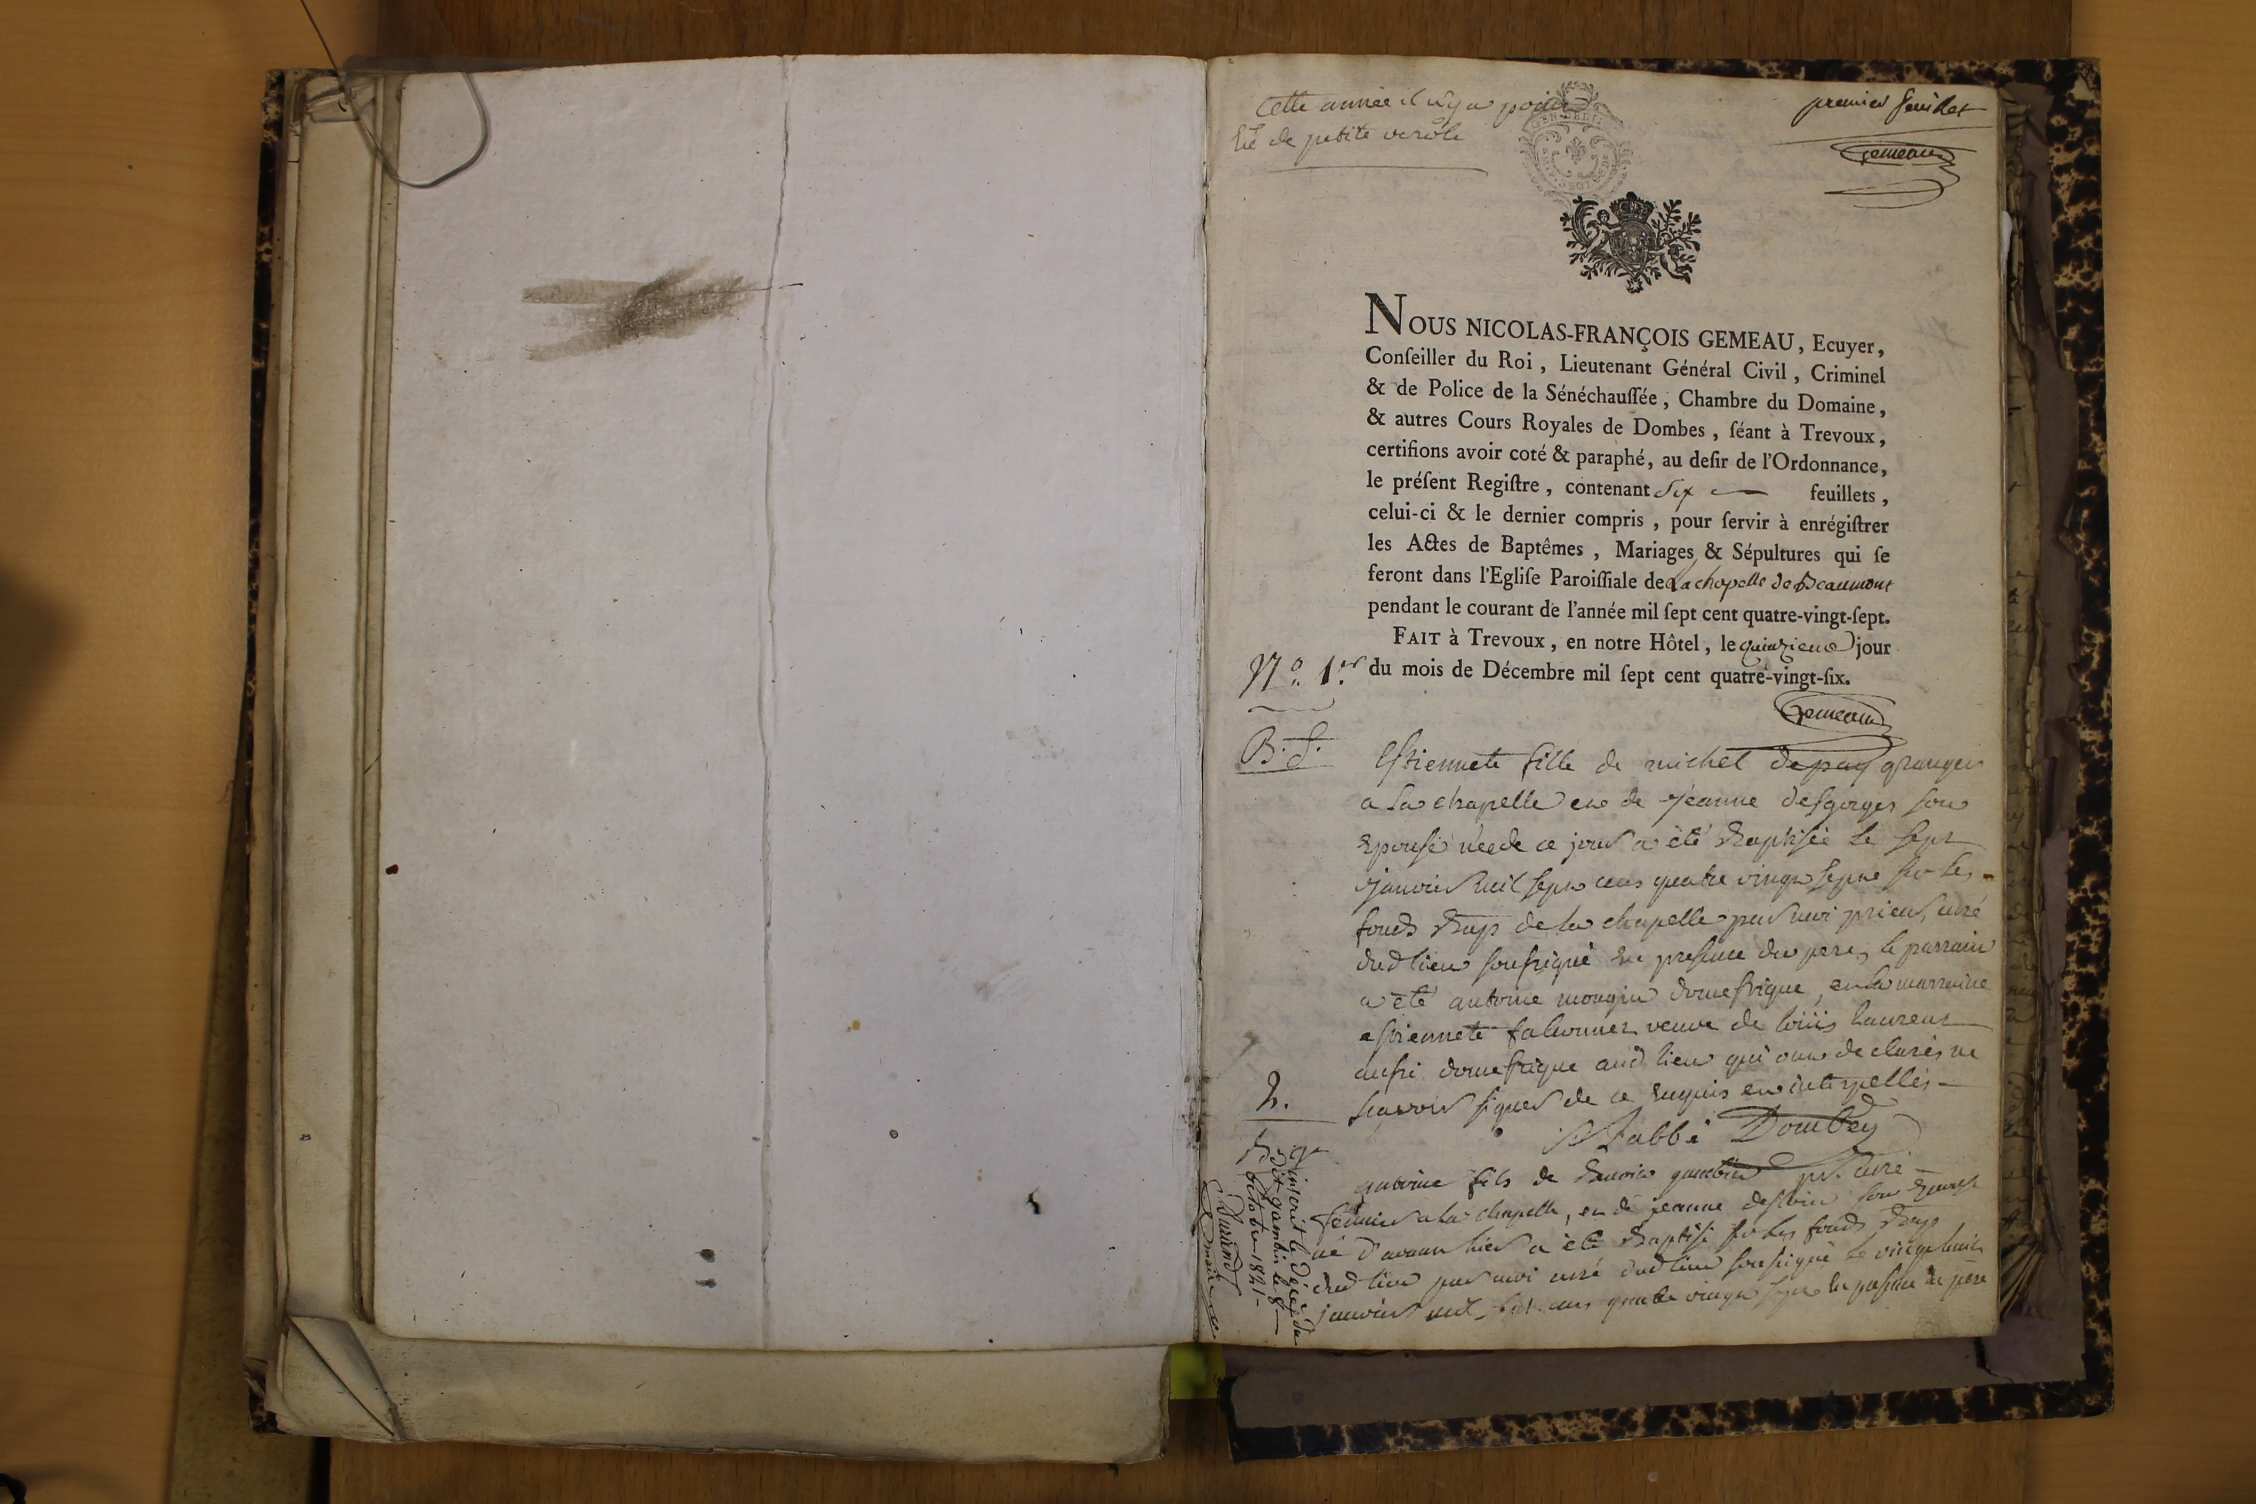 Cette année il n'y a point
Eu de petite verôle
premier feuillet
Gemeau
NOUS NICOLAS-FRANÇOIS GEMEAU, Ecuyer,
Conſeiller du Roi, Lieutenant Général Civil, Criminel
& de Police de la Sénéchauſſée, Chambre du Domaine,
& autres Cours Royales de Dombes, ſéant à Trevoux,
certifions avoir coté & paraphé, au deſir de l'Ordonnance,
le préſent Regiſtre, contenant Six feuillets,
celui-ci & le dernier compris, pour ſervir à enrégiſtrer
les Actes de Baptêmes, Mariages & Sépultures qui ſe
feront dans l'Egliſe Paroiſſiale de La chapelle de Beaumont
pendant le courant de l'année mil ſept cent quatre-vingt-ſept.
FAIT à Trevoux, en notre Hôtel, le quinzieme jour
du mois de Décembre mil ſept cent quatre-vingt-ſix.
Gemeau
N.º 1.er
B. S.
Estiennete fille de michel granger
a La chapelle et de Jeanne desgorges son
Epouse née de ce jour a été Baptisée le sept
Janvier mil sept cens quatre vingt sept sur les
fonds Bap de la chapelle par moi prieur, curé
dud lieu soussigné En presence du pere, le parrain
a été antoine mongin domestique, et la marraine
estiennete falconnet veuve de loüis Laurent
aussi domestique aud lieu qui ont declarés ne
sçavoir signer de ce Enquis et interpellés
L'abbé Dombey
pr. curé
2.
antoine fils de Benoit gambin
fermier a La chapelle, et de jeanne son Epouse
né d'avant hier a été Baptisé sur les fonds Bap
dud lieu par moi curé dud lieu soussigné le vingt huit
janvier mil sept cens quatre vingt sept En presence du pere
inscrit le décés du
dit gambin le 8
octobre 1841
Durand
maire